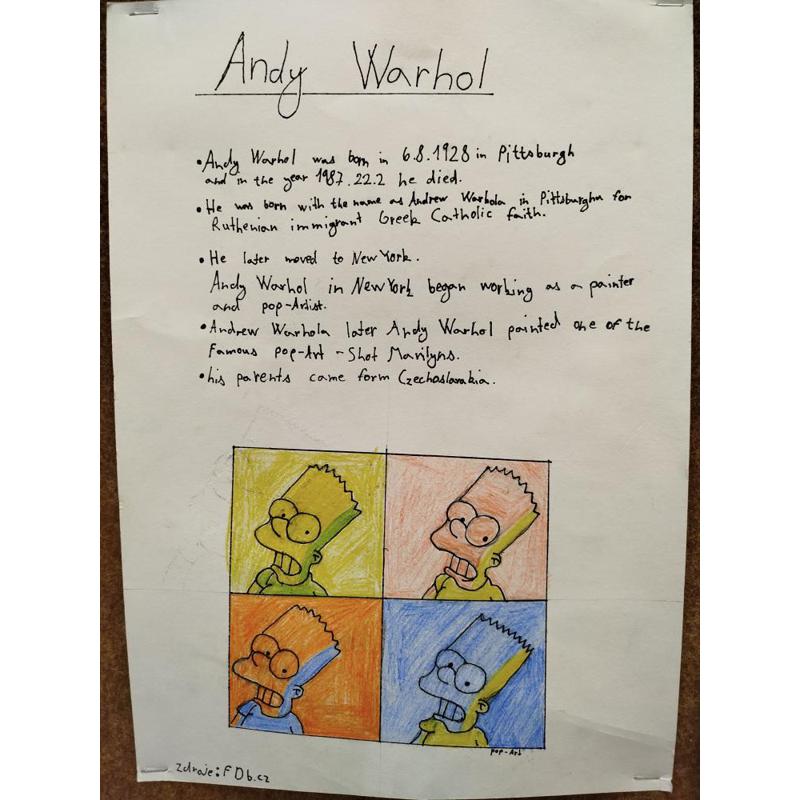 Andy Warhol
• Andy Warhol was born in 6.8.1928 in Pittsburgh
and in the year 1987.22.2 he died.
• He was born with the name as Andrew Warhola in Pittsburghn for
Ruthenian immigrant Greek Catholic faith.
• He later moved to New York.
Andy Warhol in New York began working as a painter
and pop-Artist.
• Andrew Warhola later Andy Warhol painted one of the
Famous pop-Art - Shot Marilyns.
• his parents came form Czechoslavakia.
pop-Art
zdroje: FDb.cz